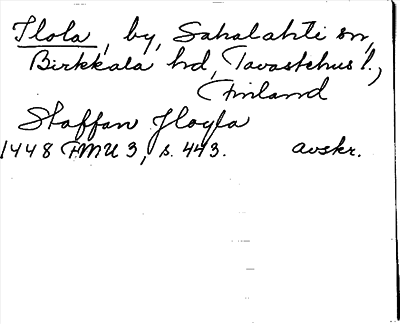 Ilola, by, Sahalahti sn,
Birkkala hd, Tavastehus l.,
(Finland
Staffan Jloyla
1448 FMU 3, s. 443. avskr.